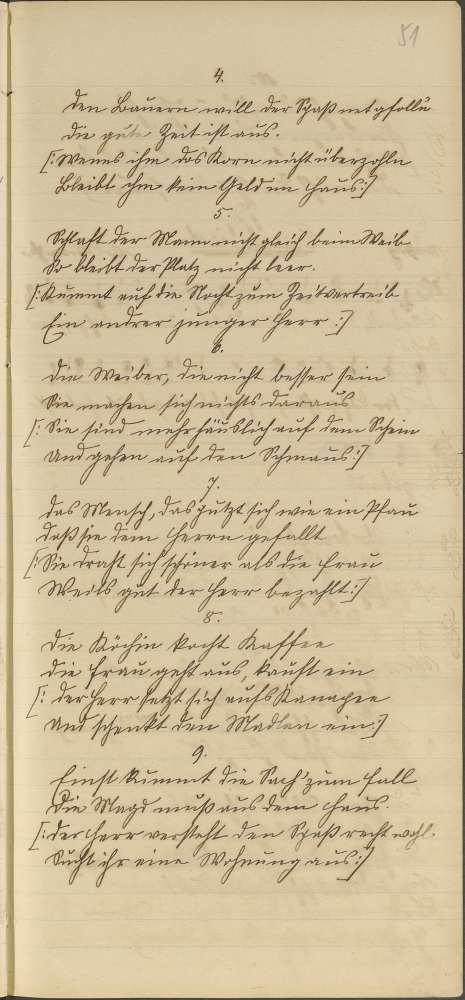 51
4.
Den Bauern will der Spaß net gfolln
Die gute Zeit ist aus.
[: Wenns ihm das Korn nicht überzahln
Bleibt ihm kein Geld im Haus :]
5.
Schlaft der Mann nicht gleich beim Weib
So bleibt der Platz nicht leer.
[: Kummt auf die Nacht zum Zeitvertreib
Ein andrer junger Herr :]
6.
Die Weiber, die nicht besser sein
Sie machen sich nichts daraus
[: Sie sind mehr häuslich auf dem Schein
Und gehen auf den Schmaus :]
7.
Das Mensch, das putzt sich wie ein Pfau
Daß sie dem Herrn gefallt
[: Sie draht sich schöner als die Frau
Weils gut der Herr bezahlt :]
8.
Die Köchin kocht Kaffee
Die Frau geht aus, kauft ein
[: Der Herr setzt sich aufs Kanapee
Und schenkt den Madlen ein :]
9.
Einst kummt die Sach' zum Fall
Die Magd muß aus dem Haus.
[: Der Herr versteht den Spaß recht wohl.
Sucht ihr eine Wohnung aus :]